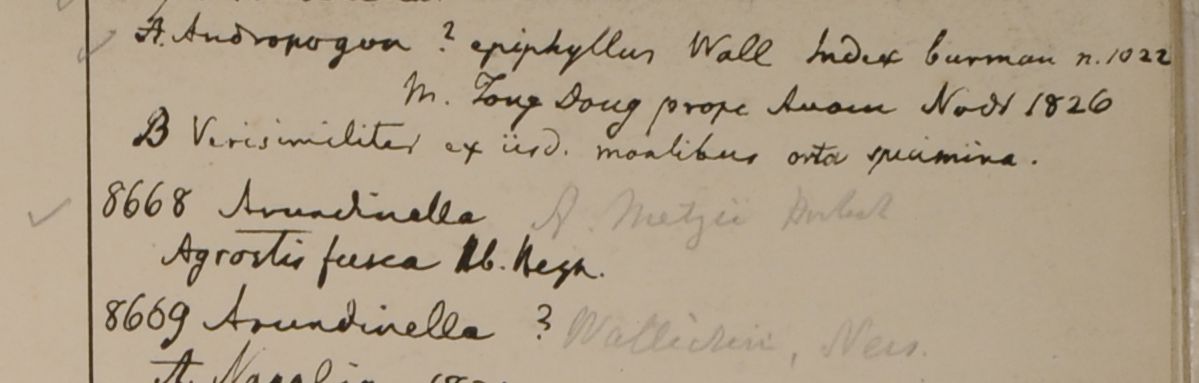 A. Andropogon ? epiphyllus Wall Index burman n. 1022
M. Tong Doug prope Avam Novr 1826
B Verisimiliter ex iisd. montibus orta specimina.
8668 Arundinella A. Metzii
Agrostis fusca Hb. Heyn.
8669 Arundinella ? Wallichii, Nees.
A. Napalia